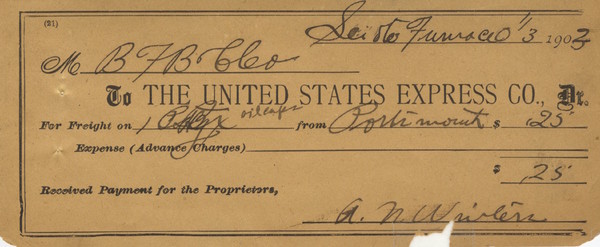 (21)
Scioto Furnace 1/3 1903
M B F B & Co
To THE UNITED STATES EXPRESS CO., Dr.
For Freight on 1 Bx oil cups from Portsmouth $ .25
Expense (Advance Charges)
$ .25
Received Payment for the Proprietors,
A. N. Winters